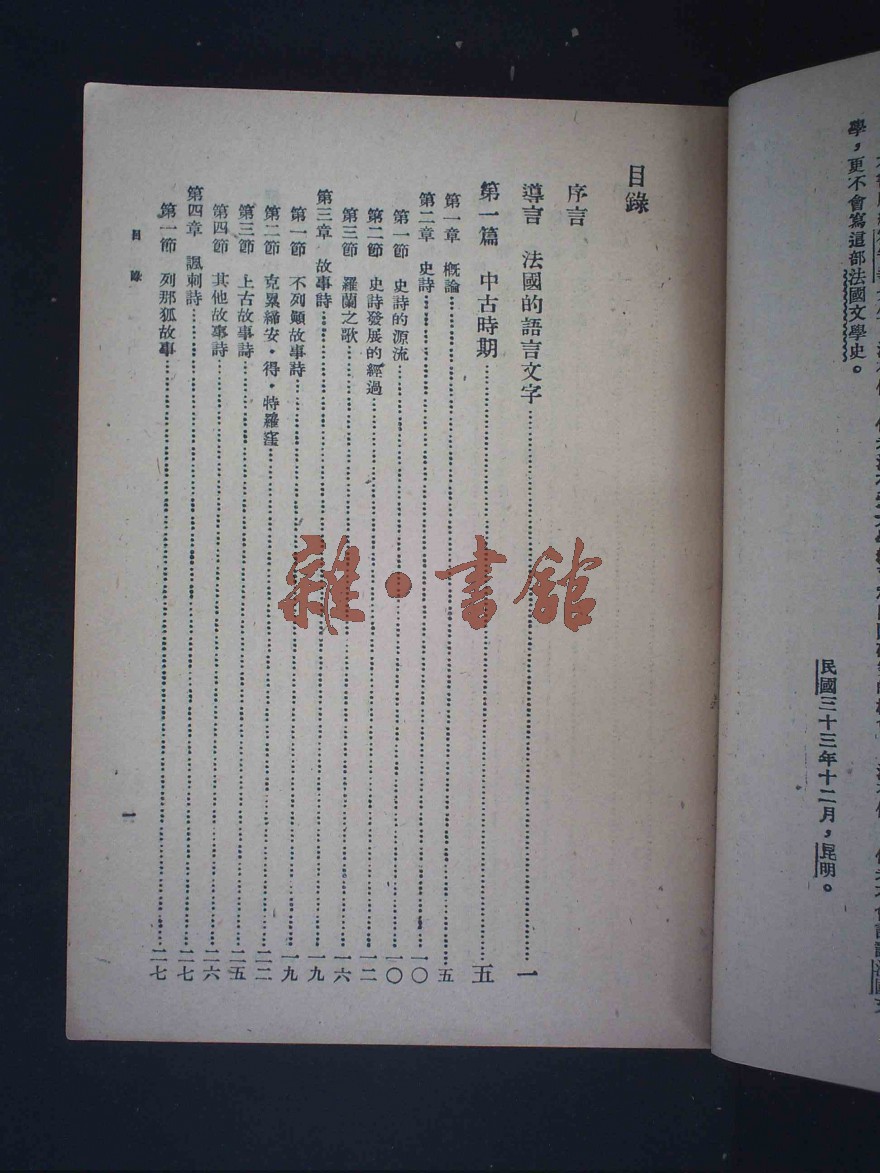 學，更不會寫這部法國文學史。
民國三十三年十二月，昆明。
目錄
序言
導言 法國的語言文字……一
第一篇 中古時期……五
第一章 概論……五
第二章 史詩……一〇
第一節 史詩的源流……一〇
第二節 史詩發展的經過……一二
第三節 羅蘭之歌……一六
第三章 故事詩……一九
第一節 不列顛故事詩……一九
第二節 克累緒安·得·特羅窪……二二
第三節 上古故事詩……二五
第四節 其他故事詩……二六
第四章 諷刺詩……二七
第一節 列那狐故事……二七
目錄
一
雜·書館